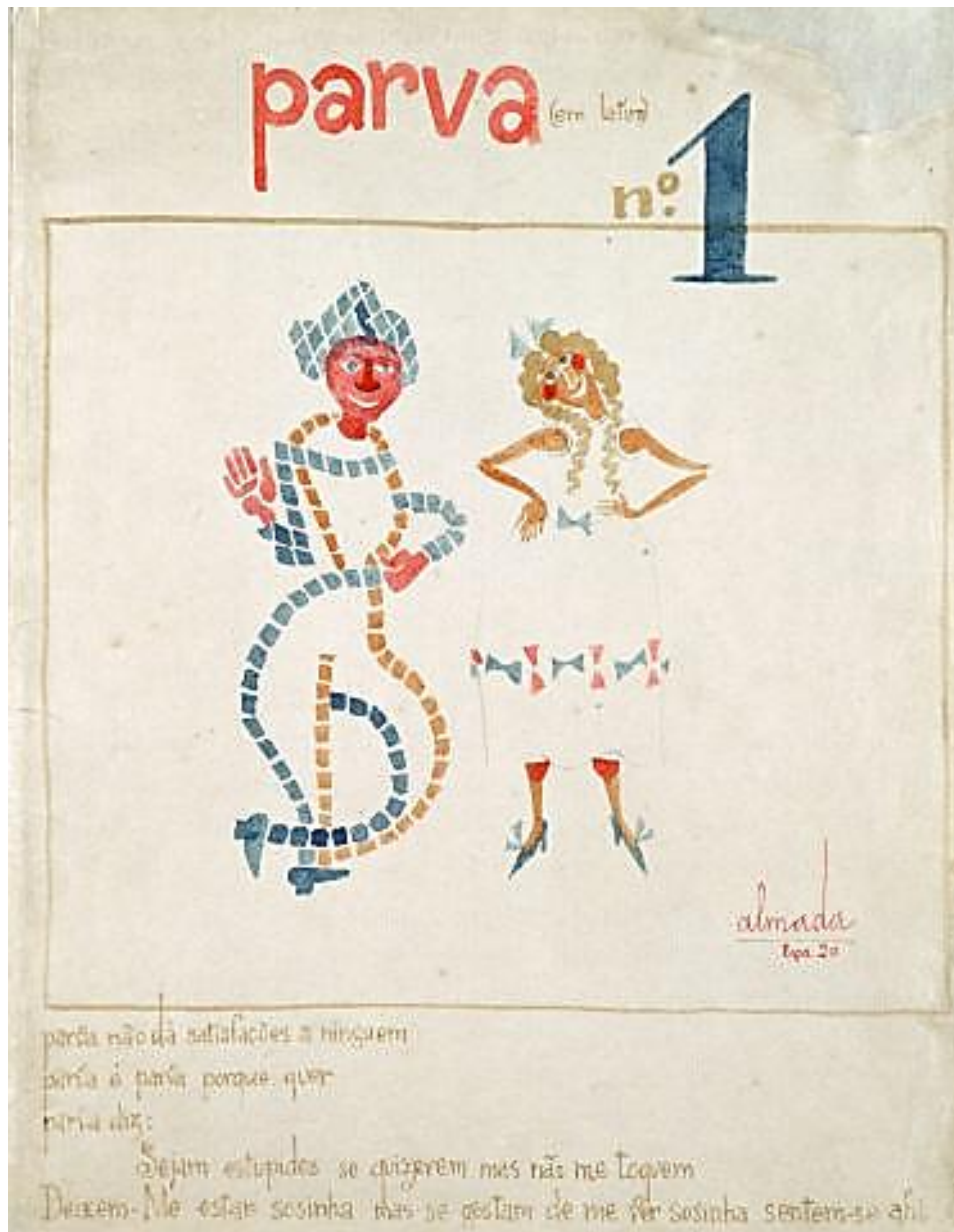 parva (em latim)
nº 1
almada
Lxa. 20
parva não dá satisfações a ninguem
parva é parva porque quer
parva diz:
Sejam estupidos se quizerem mas não me toquem
Deixem-Me estar sosinha mas se gostam de me vêr sosinha sentem-se ahi.